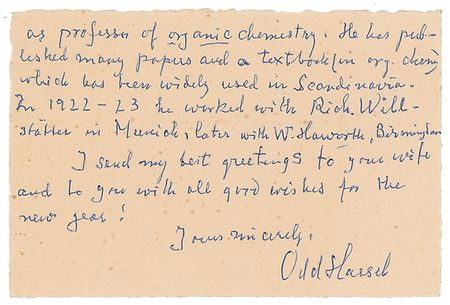 as professor of organic chemistry. He has pub-
lished many papers and a textbook (in org. chem)
which has been widely used in Scandinavia.
In 1922-23 he worked with Rich. Will-
stätter in Munich, later with W. Haworth, Birmingham
I send my best greetings to your wife
and to you with all good wishes for the
new year!
Yours sincerely,
Odd Hassel